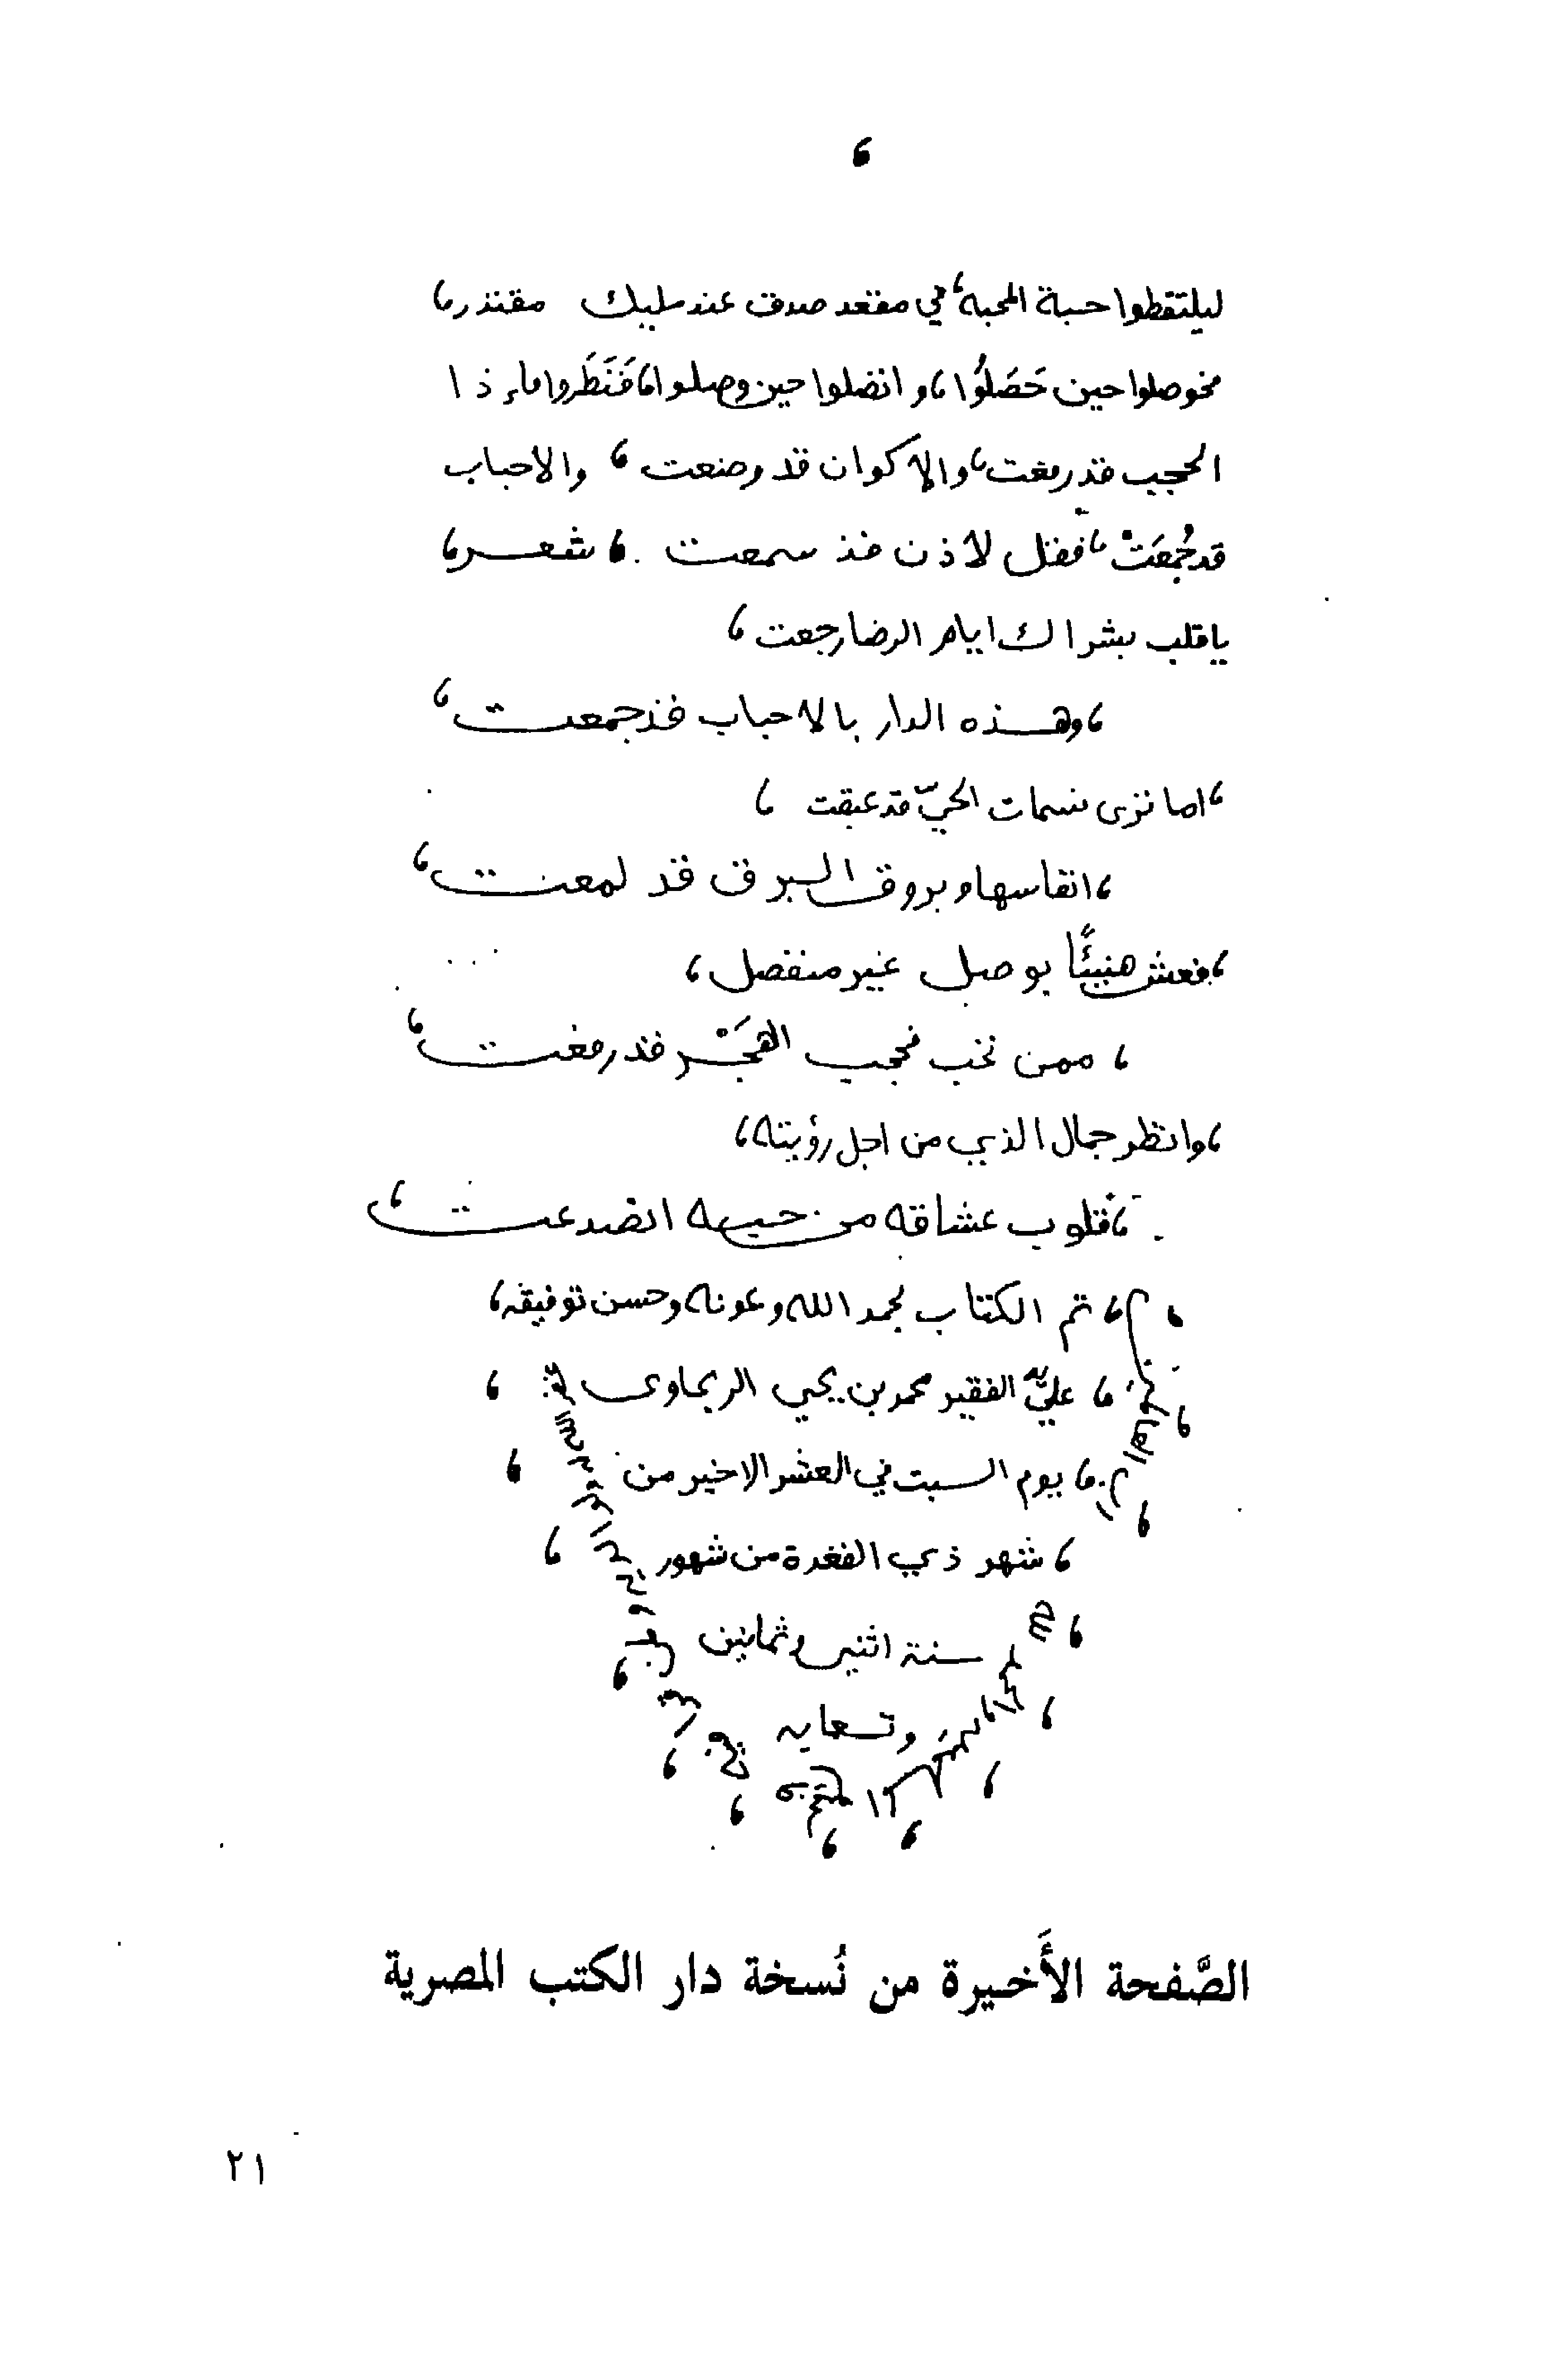 ليلتقطوا حبة المحبه، في مقعد صدق عند مليك مقتدر،
فوصلوا حين حَصَلُوا، واتصلوا حين وصلوا، فَنَظَروا فاء ذا
الحجب قد رفعت، والاكوان قد وضعت، والاحباب
قد جُمِعَتْ، فقل لاذن قد سمعت. شعر،
يا قلب بشراك ايام الرضا رجعت،
، وهذه الدار بالاحباب قد جمعت،
، اما ترى نسمات الحيّ قد عبقت،
، انفاسها وبروق البرق قد لمعت،
، فعش هنيئًا بوصل غير منفصل،
، ممن تحب فحجب الهَجْر قد رفعت،
، وانظر جمال الذي من اجل رؤيته،
، قلوب عشاقه من حبه انصدعت،
، تم الكتاب بحمد الله وعونه وحسن توفيقه،
، علي يد الفقير محمد بن يحي الريحاوي
، يوم السبت في العشر الاخير من
، شهر ذي القعدة من شهور
سنة اثنين وثمانين
وتسعمايه
الصَّفحة الأَخيرة من نُسخة دار الكتب المصرية
٢١